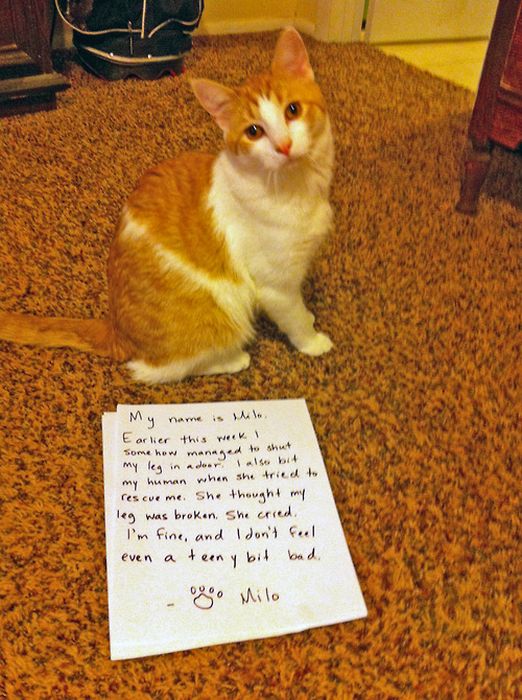 My name is Milo.
Earlier this week I
somehow managed to shut
my leg in a door. I also bit
my human when she tried to
rescue me. She thought my
leg was broken. She cried.
I'm fine, and I don't feel
even a teeny bit bad.
- Milo